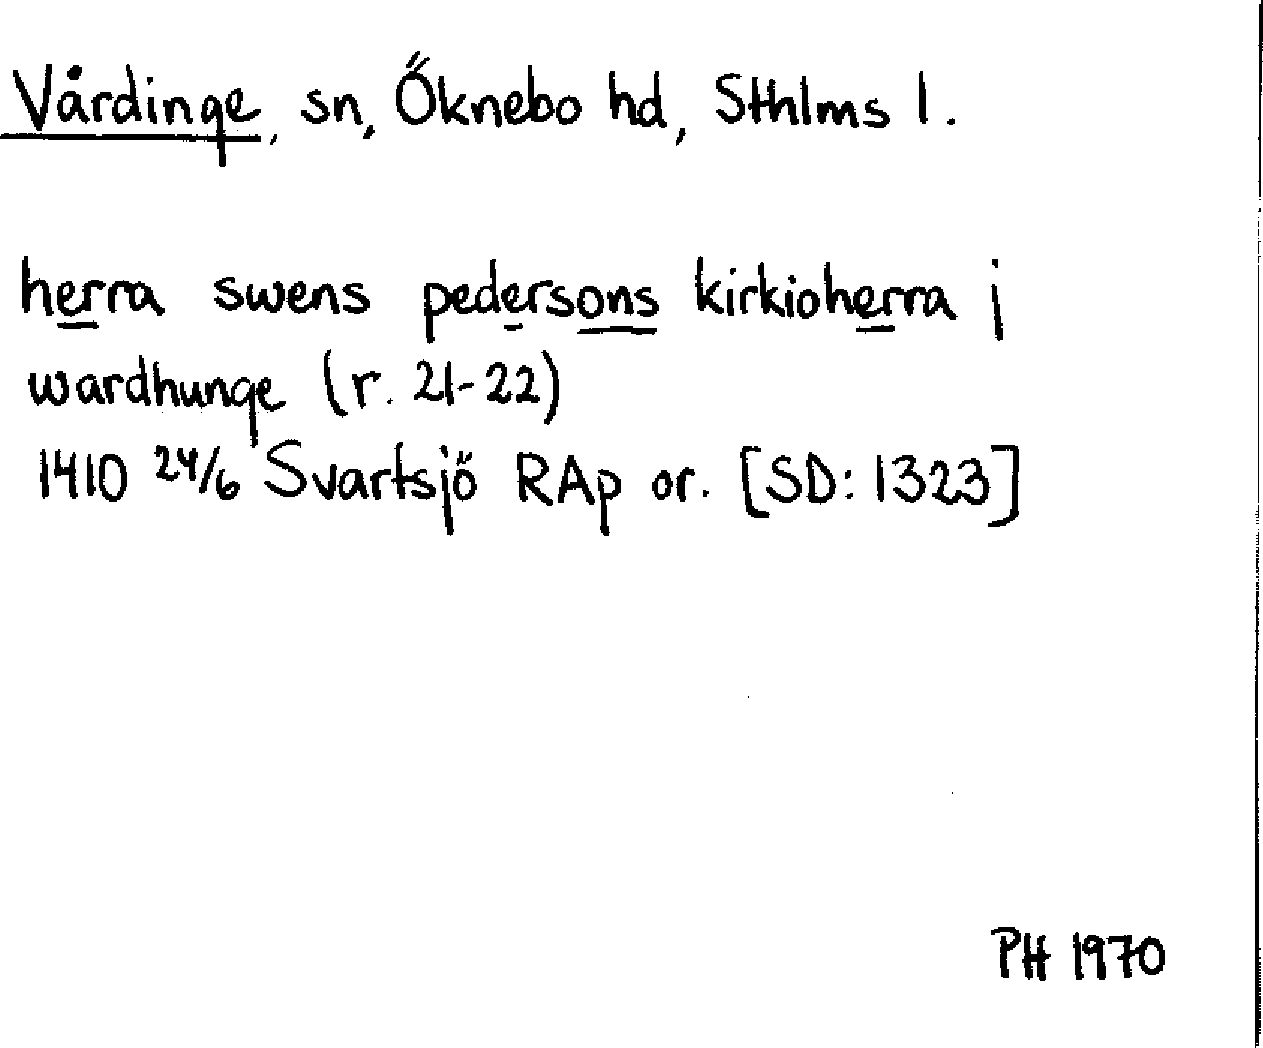 Vårdinge, sn, Öknebo hd, Sthlms l.
herra swens pedersons kirkioherra j
wardhunge (r. 21-22)
1410 24/6 Svartsjö RAp or. [SD: 1323]
PH 1970